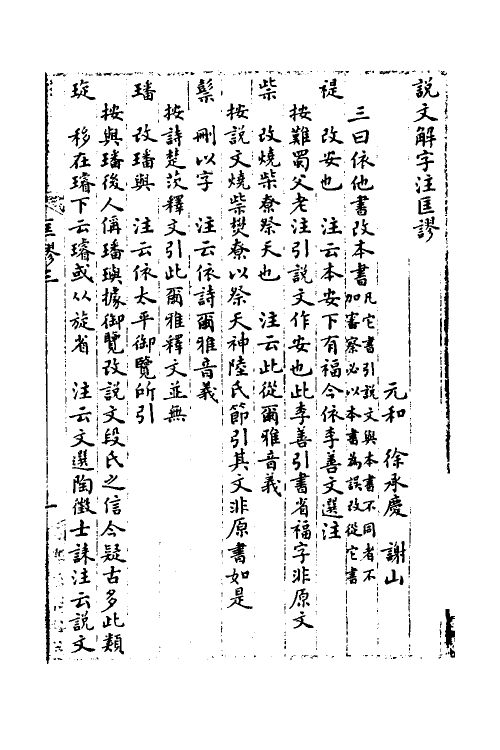 說文解字注匡謬
元和　徐承慶　謝山
三曰依他書改本書凡它書引說文與本書不同者不
加審察必以本書為誤改從它書
禔　改安也　注云本安下有福今依李善文選注
按難蜀父老注引說文作安也此李善引書省福字非原文
祡　改燒柴尞祭天也　注云此從爾雅音義
按說文燒柴焚尞以祭天神陸氏節引其文非原書如是
刪以字　注云依詩爾雅音義
按詩楚茨釋文引此爾雅釋文並無
璠　改璠與　注云依太平御覽所引
按與璠後人偁璠璵據御覽改說文段氏之信今疑古多此類
琁　移在璿下云璿或从旋省　注云文選陶徵士誄注云說文
匡謬三
一